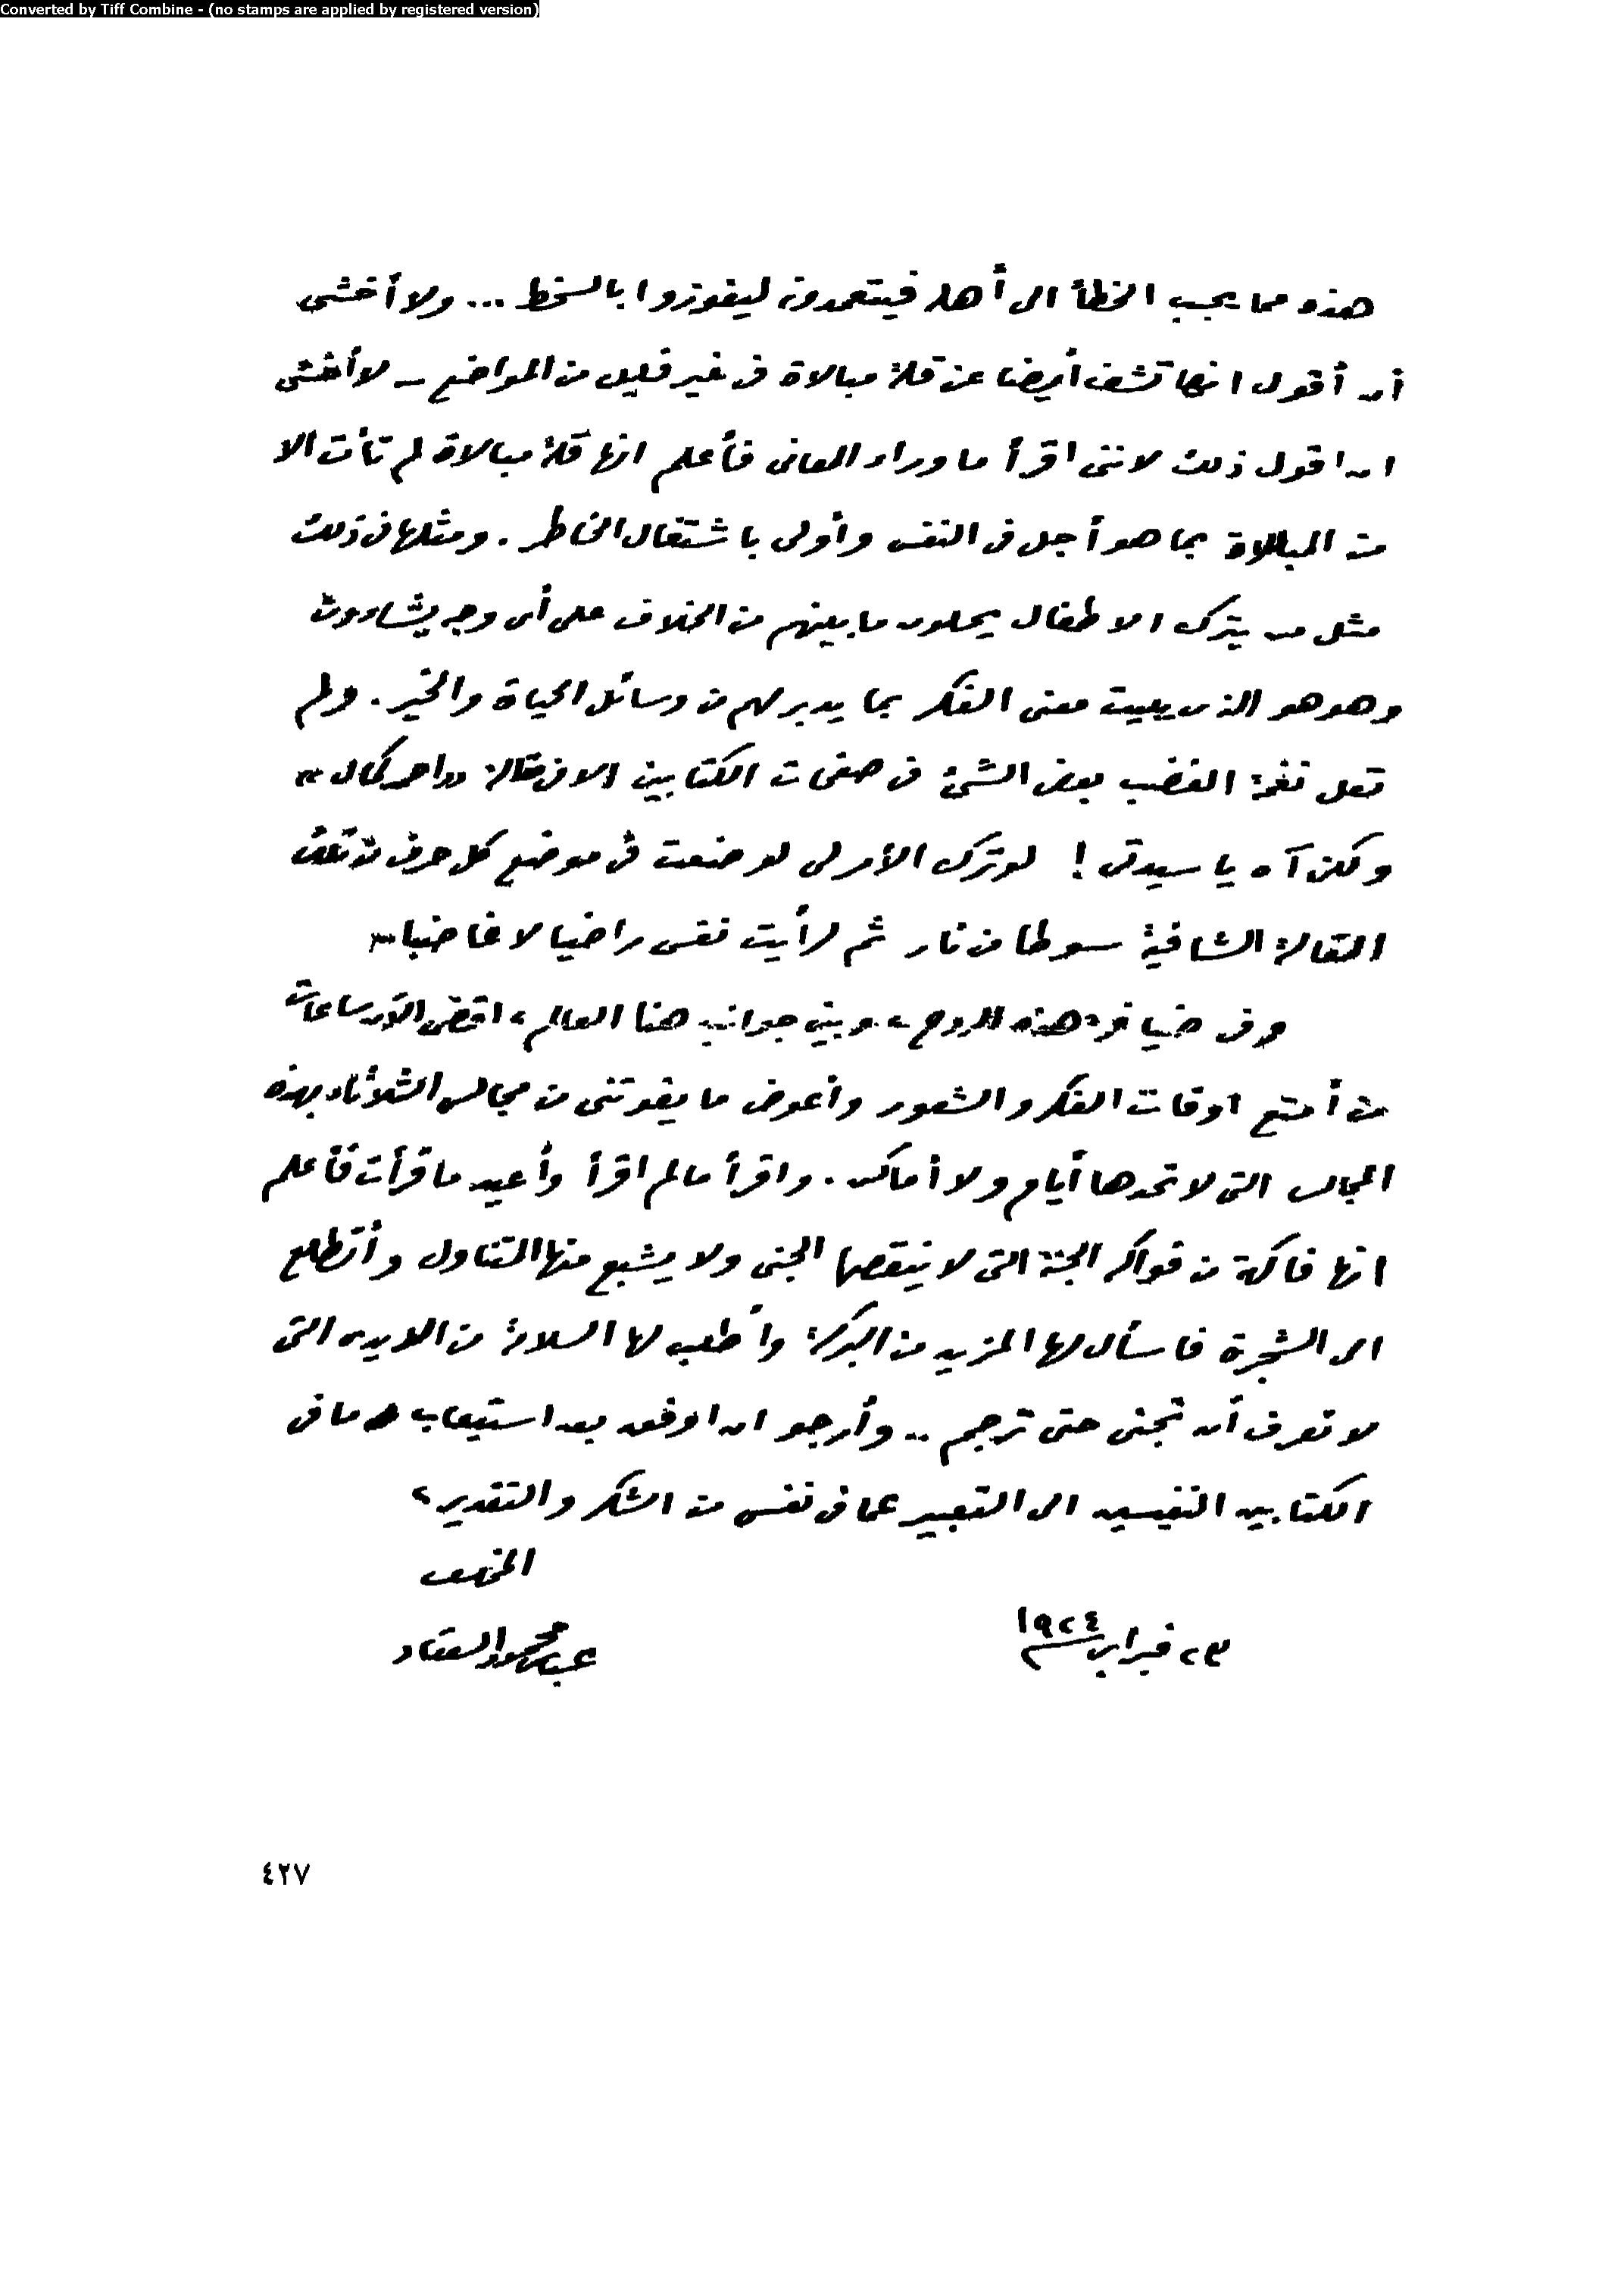 Converted by Tiff Combine - (no stamps are applied by registered version)
هذه مما يحبب الخطأ الى أهله فيتعمدون ليفوزوا بالسخط ... ولا أخشى
أن أقول انها تشف أيضا عن قلة مبالاة فى غير قليل من المواضع – لا أخشى
ان اقول ذلك لاننى اقرأ ما وراء المعانى فأعلم انها قلة مبالاة لم تأت الا
من المبالاة بما هو أجل فى النفس وأولى باشتغال الخاطر . ومثلها فى ذلك
مثل من يترك الاطفال يحلون ما بينهم من الخلاف على أى وجه يشاءون
وهو هو الذى يبيت معنى الفكر بما يدبر لهم من وسائل الحياة والخير . ولم
تعل نغمة الغضب بعض الشئ فى صفحات الكتابين الا فى مقالة «احمد كمال»
ولكن آه يا سيدتى ! لو ترك الأمر لى لوضعت فى موضع كل حرف من تلك
المقالة الشافية سوطا من نار ثم لرأيت نفسى راضيا لا غاضبا ...
وفى ضيافة هذه الروح ، وبين جوانب هذا العالم ، اقضى الآن ساعات
من أمتع اوقات الفكر والشعور وأعوض ما يفوتنى من مجالس الثلاثاء بهذه
المجالس التى لا تحدها أيام ولا أماكن . واقرأ ما لم اقرأ وأعيد ما قرأت فأعلم
انها فاكهة من فواكه الجنة التى لا ينقصها الجنى ولا يشبع منها التناول وأتطلع
الى الشجرة فاسأل لها المزيد من البركة وأطلب لها السلامة من الايدى التى
لا تعرف أن تجنى حتى ترجم .. وأرجو ان اوفق بعد استيعاب ما فى
الكتابين النفيسين الى التعبير عما فى نفسى من الشكر والتقدير ،
المخلص
عباس محمود العقاد
٢٣ فبراير ١٩٢٤
٤٢٧